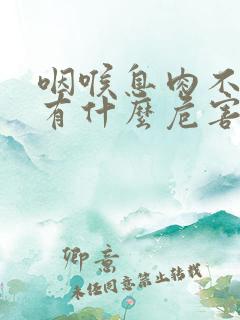 咽喉息肉不
有什麼危害
卿意
未经同意禁止转载